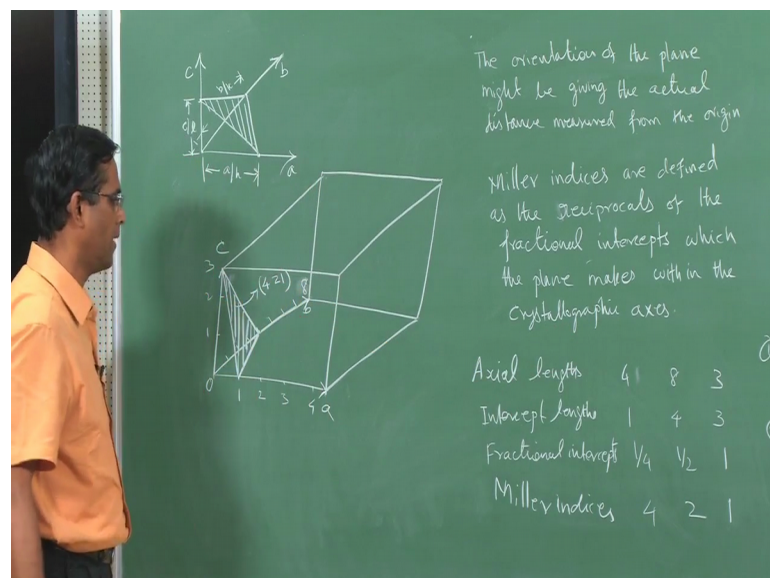 c
b/k
b
c/l
a/h
a
The orientation of the plane
might be giving the actual
distance measured from the origin
Miller indices are defined
as the reciprocals of the
fractional intercepts which
the plane makes with in the
crystallographic axes.
C
3
2
1
0
(421)
8
b
1 2 3 4 a
Axial lengths 4 8 3
Intercept lengths 1 4 3
Fractional intercepts 1/4 1/2 1
Miller indices 4 2 1